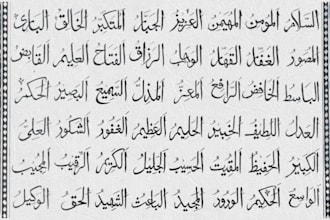 السلام المؤمن المهيمن العزيز الجبار المتكبر الخالق البارئ
المصور الغفار القهار الوهاب الرزاق الفتاح العليم القابض
الباسط الخافض الرافع المعز المذل السميع البصير الحكم
العدل اللطيف الخبير الحليم العظيم الغفور الشكور العلي
الكبير الحفيظ المقيت الحسيب الجليل الكريم الرقيب المجيب
الواسع الحكيم الودود المجيد الباعث الشهيد الحق الوكيل